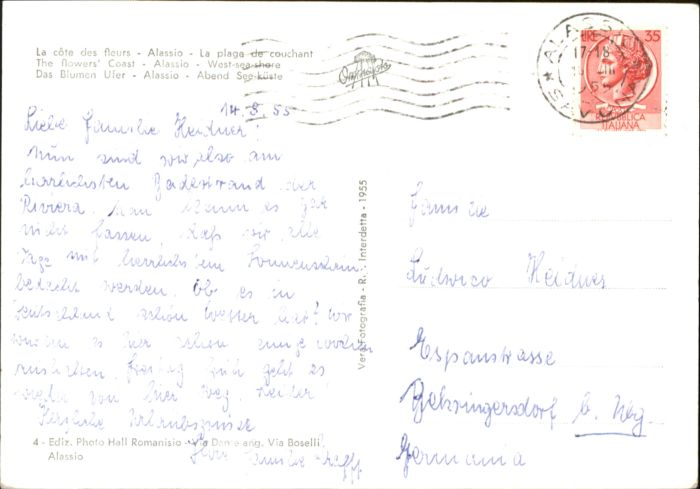 La côte des fleurs - Alassio - La plaga de couchant
The flowers' Coast - Alassio - West-sea-shore
Das Blumen Ufer - Alassio - Abend See-küste
ALASSIO
17-18
SAVONA
LIRE 35
REPUBBLICA
ITALIANA
14.8.55
Liebe Familie Heidner!
Nun sind wir also am
herrlichsten Badestrand der
Riviera. Man kann es gar
nicht fassen, daß wir alle
Tage mit herrlichstem Sonnenschein
bedacht werden. Ob es in
Deutschland schön Wetter hat? Wir
würden es hier schon einige Wochen
aushalten. Freitag früh geht es
von hier weg. Leider!
Herzliche Urlaubsgrüsse
Ihre Familie
4 - Ediz. Photo Hall Romanisio - Via Dante ang. Via Boselli
Alassio
Vera Fotografia - Rip. Interdetta - 1955
Familie
Ludwico Heidner
Espanstrasse
b. Nbg.
Germania